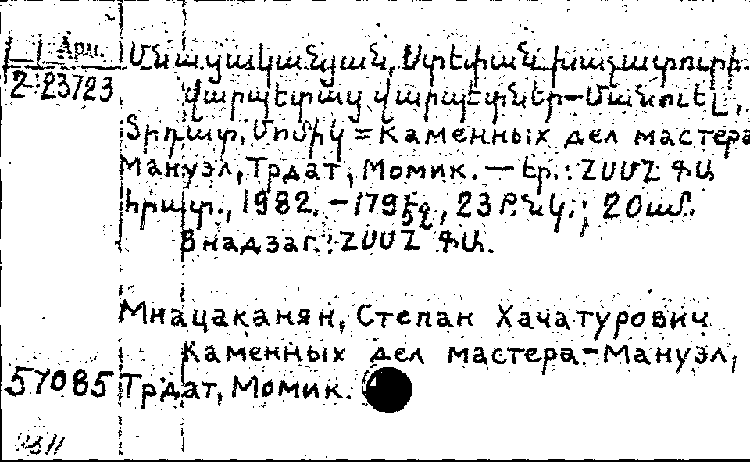 Арм. Մնացականյան, Ստեփան Խաչատուրի.
2-23723 Վարպետաց վարպետներ-Մանուել,
Տրդատ, Մոմիկ = Каменных дел мастера
Мануэл, Трдат, Момик. — Եր.: ՀՍՍՀ ԳԱ
հրատ., 1982. - 179 էջ, 23 թ. նկ.; 20 սմ.
В надзаг.: ՀՍՍՀ ԳԱ.
Мнацаканян, Степан Хачатурович
Каменных дел мастера-Мануэл,
57085 Трдат, Момик.